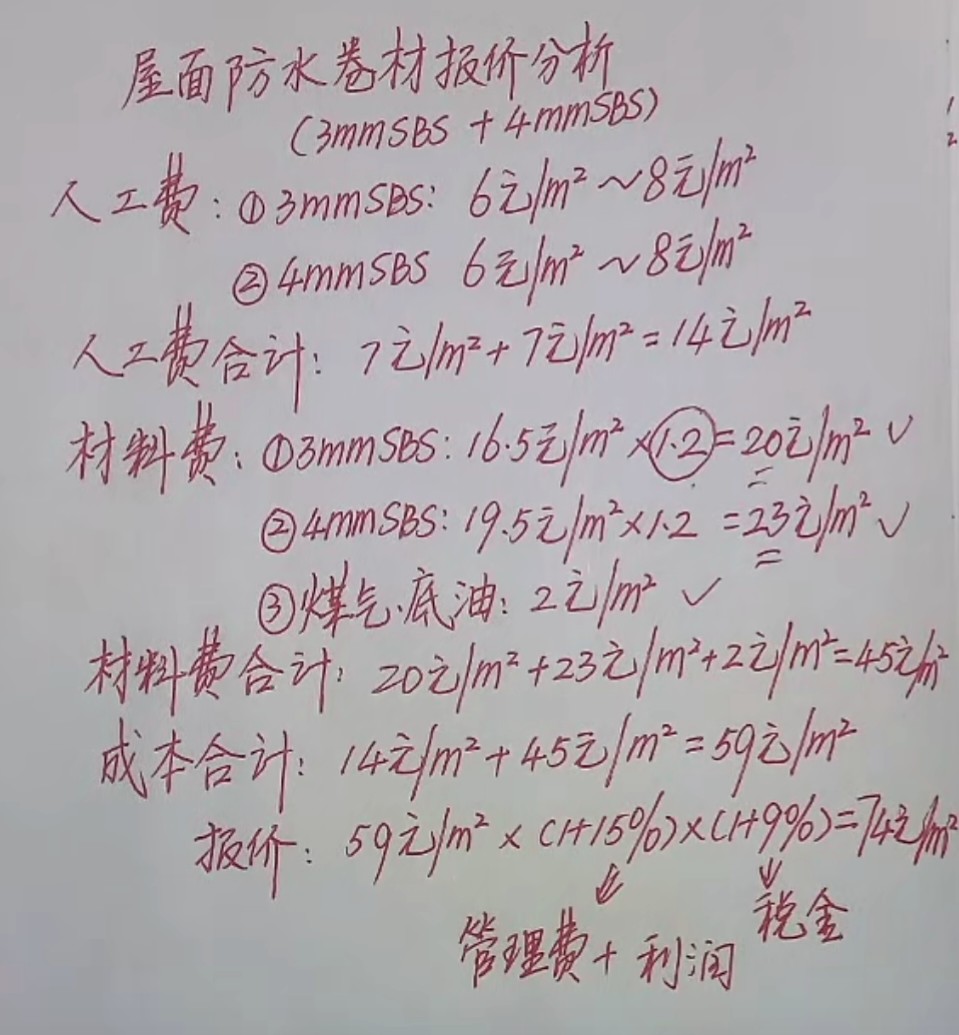 屋面防水卷材报价分析
(3mmSBS + 4mmSBS)
人工费: ①3mmSBS: 6元/m² ~8元/m²
②4mmSBS 6元/m² ~8元/m²
人工费合计: 7元/m²+7元/m²=14元/m²
材料费: ①3mmSBS: 16.5元/m²×1.2=20元/m² ✓
②4mmSBS: 19.5元/m²×1.2 =23元/m² ✓
③煤气、底油: 2元/m² ✓
材料费合计: 20元/m²+23元/m²+2元/m²=45元/m²
成本合计: 14元/m²+45元/m²=59元/m²
报价: 59元/m² × (1+15%)×(1+9%)=74元/m²
管理费+利润
税金